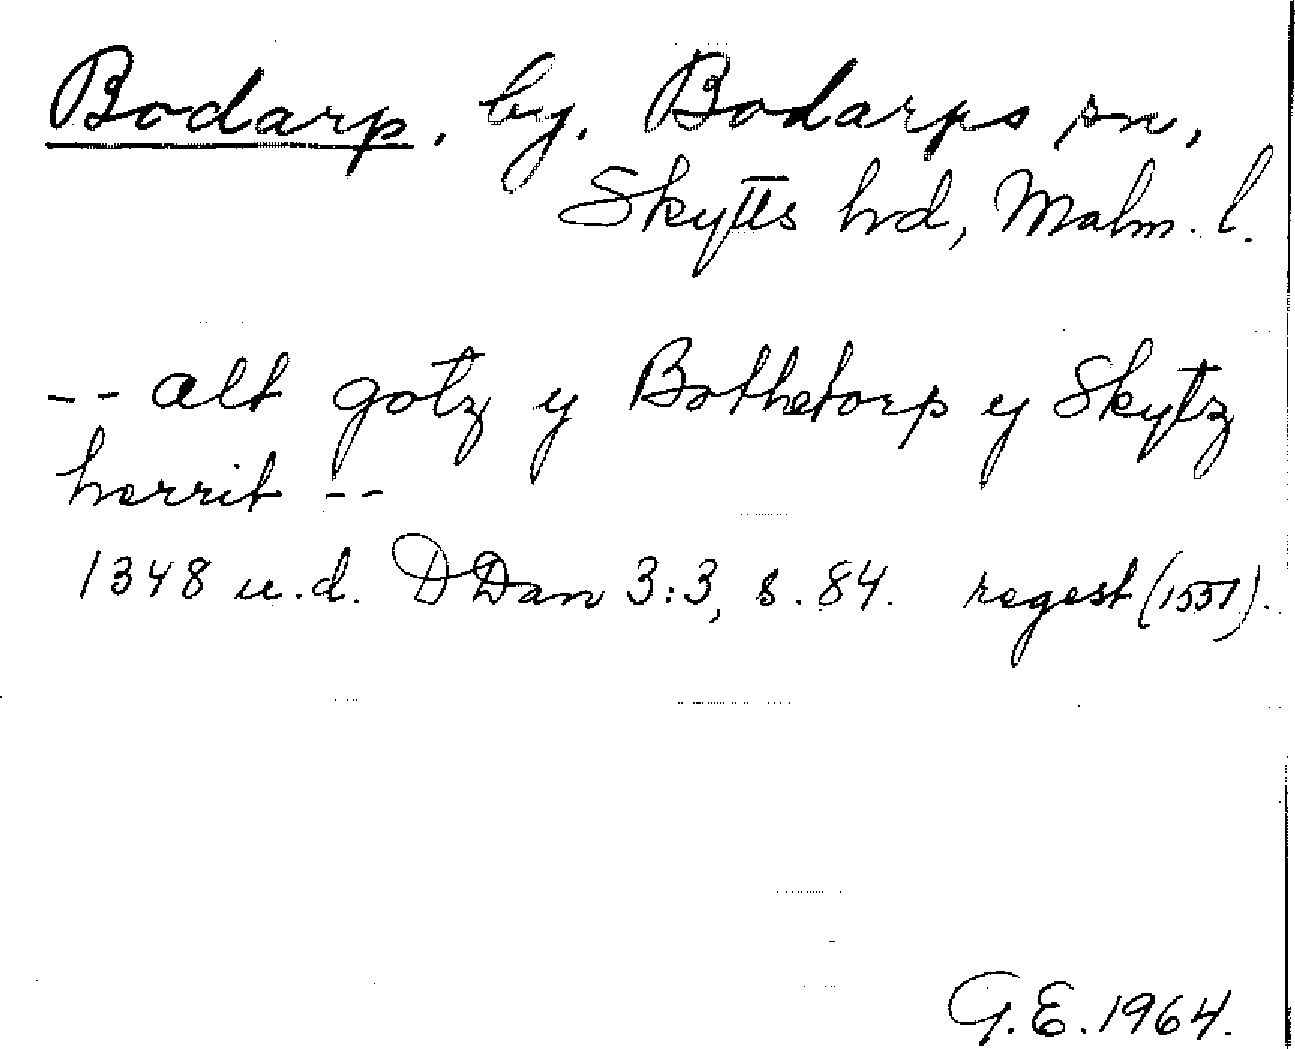 Bodarp, by. Bodarps sn,
Skytts hd, Malm. l.
-- alt gotz y Bothetorp y Skytz
herrit --
1348 u.d. DDan 3:3, s. 84. regest (1551).
G.E. 1964.